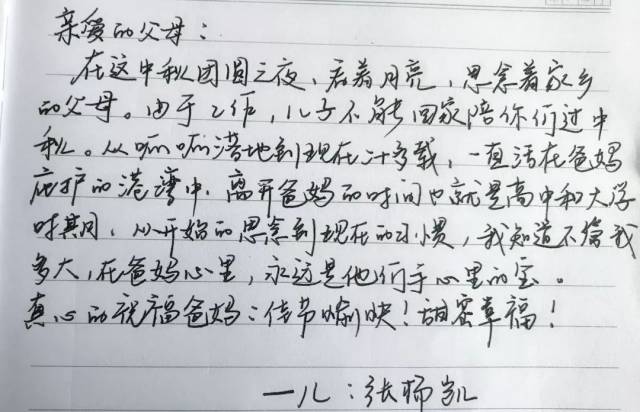 亲爱的父母：
在这中秋团圆之夜、看着月亮，思念着家乡
的父母。由于工作，儿子不能回家陪你们过中
秋。从呱呱落地到现在二十多载，一直活在爸妈
庇护的港湾中，离开爸妈的时间也就是高中和大学
时期间，从开始的思念到现在的习惯，我知道不管我
多大，在爸妈心里，永远是他们手心里的宝。
真心的祝福爸妈：佳节愉快！甜蜜幸福！
一儿：张杨凯